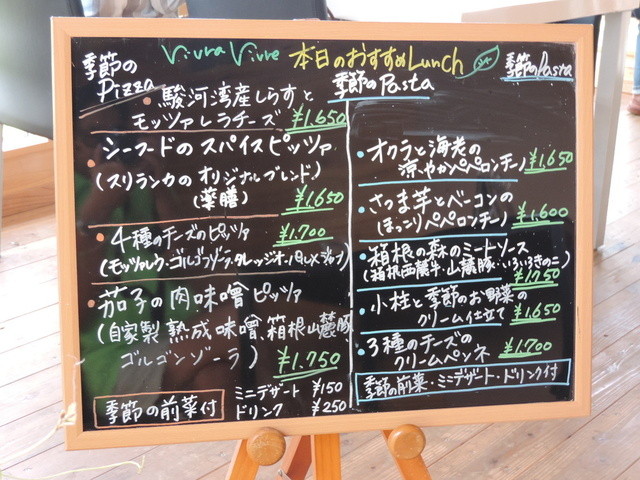 Vivra Vivre 本日のおすすめLunch
季節の
Pizza
・駿河湾産しらすと
モッツァレラチーズ ¥1,650
シーフードのスパイスピッツァ
(スリランカのオリジナルブレンド)
(薬膳) ¥1,650
・4種のチーズのピッツァ ¥1,700
(モッツァレラ・ゴルゴンゾーラ・タレッジオ・パルメジャーノ)
・茄子の肉味噌ピッツァ
(自家製熟成味噌、箱根山麓豚
ゴルゴンゾーラ) ¥1,750
季節の前菜付
ミニデザート ¥150
ドリンク ¥250
季節のPasta
季節のPasta
・オクラと海老の
涼やかペペロンチーノ ¥1,650
・さつま芋とベーコンの
(ほっこりペペロンチーノ) ¥1,600
・箱根の森のミートソース
(箱根西麓牛・山麓豚・いろいろきのこ)
¥1,750
・小柱と季節のお野菜の
クリーム仕立て ¥1,650
・3種のチーズの
クリームペンネ ¥1,700
季節の前菜・ミニデザート・ドリンク付